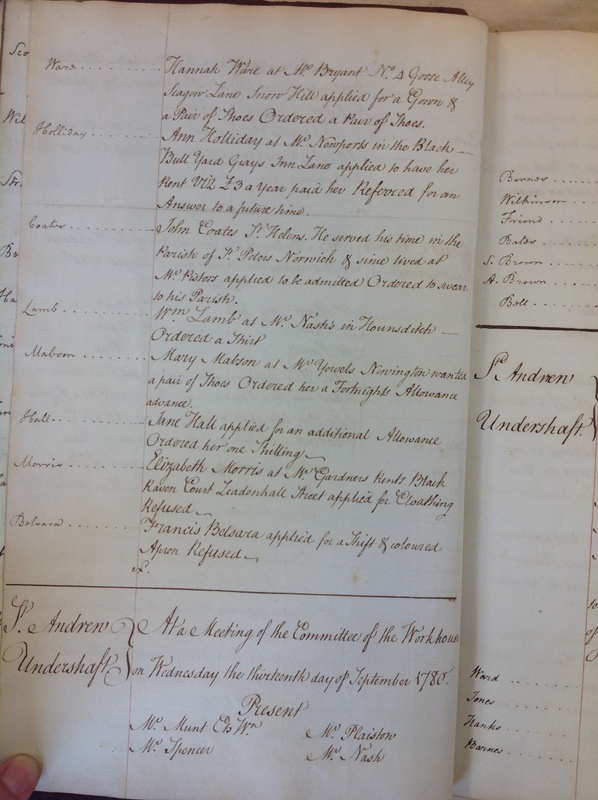 Ward........ Hannah Ware at Mrs. Bryant No. 4 Goose Alley
Seagow Lane Snow Hill applied for a Gown &
a Pair of Shoes Ordered a Pair of Shoes.
Holliday........ Ann Holliday at Mr. Newports in the Black
Bull Yard Grays Inn Lane applied to have her
Rent Viz £3 a Year paid her Referred for an
Answer to a future time.
Coates........ John Coates St. Helens. He served his time in the
Parish of St. Peters Norwich & since lived at
Mr. Pistors applied to be admitted Ordered to swear
to his Parish.
Lamb........ Wm. Lamb at Mr. Nash's in Hounsditch
Ordered a Shirt
Mabson........ Mary Mabson at Mr. Yowels Newington wanted
a pair of Shoes Ordered her a Fortnights Allowance
advance.
Hall........ Jane Hall applied for an additional Allowance
Ordered her one Shilling
Morris........ Elizabeth Morris at Mr. Gardners Rents Black
Raven Court Leadenhall Street applied for Cloathing
Refused
Belsara........ Francis Belsara applied for a Shift & coloured
Apron Refused
St. Andrew Undershaft. At a Meeting of the Committee of the Workhouse
on Wednesday the thirteenth day of September 1780.
Present
Mr. Munt Ch Wn. Mr. Plaistow
Mr. Spencer Mr. Nash
Barnes
Wilkinson
Friend
Bates
S. Brown
A. Brown
Bolt
St. Andrew
Undershaft.
Ward
Jones
Hanks
Barnes